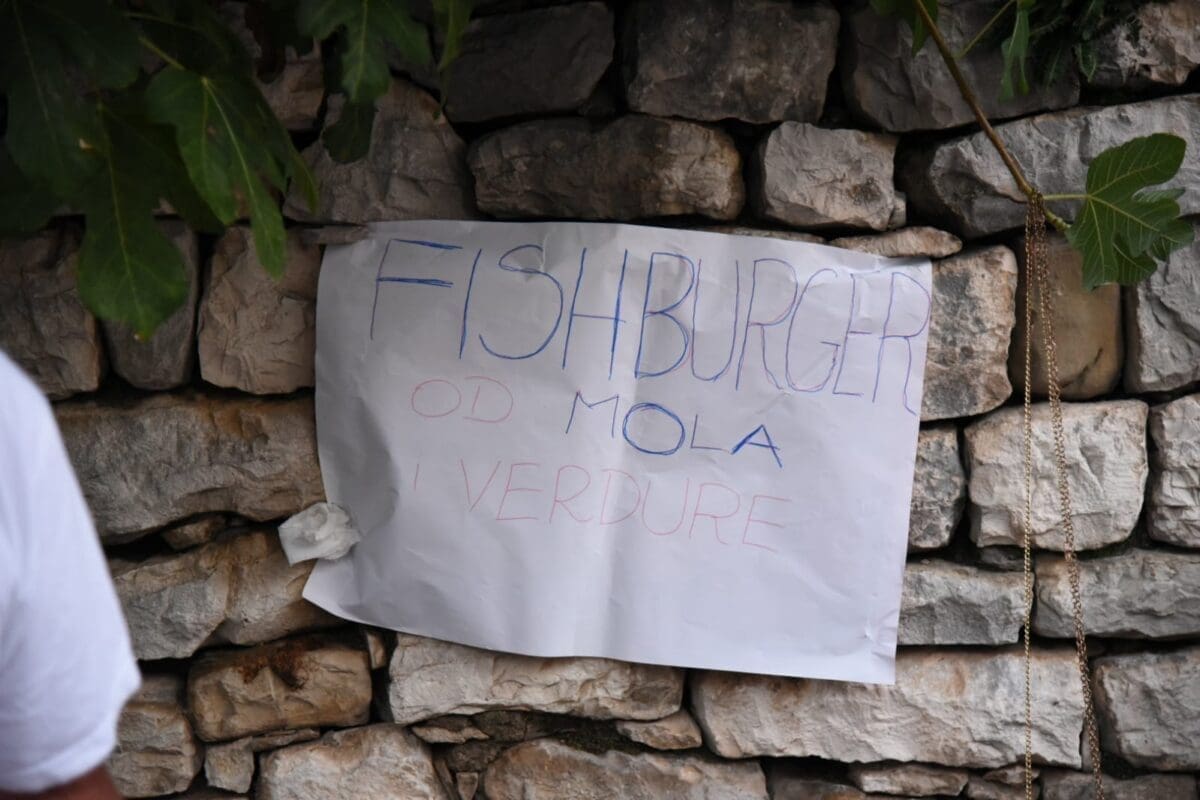 FISHBURGER
OD MOLA
I VERDURE